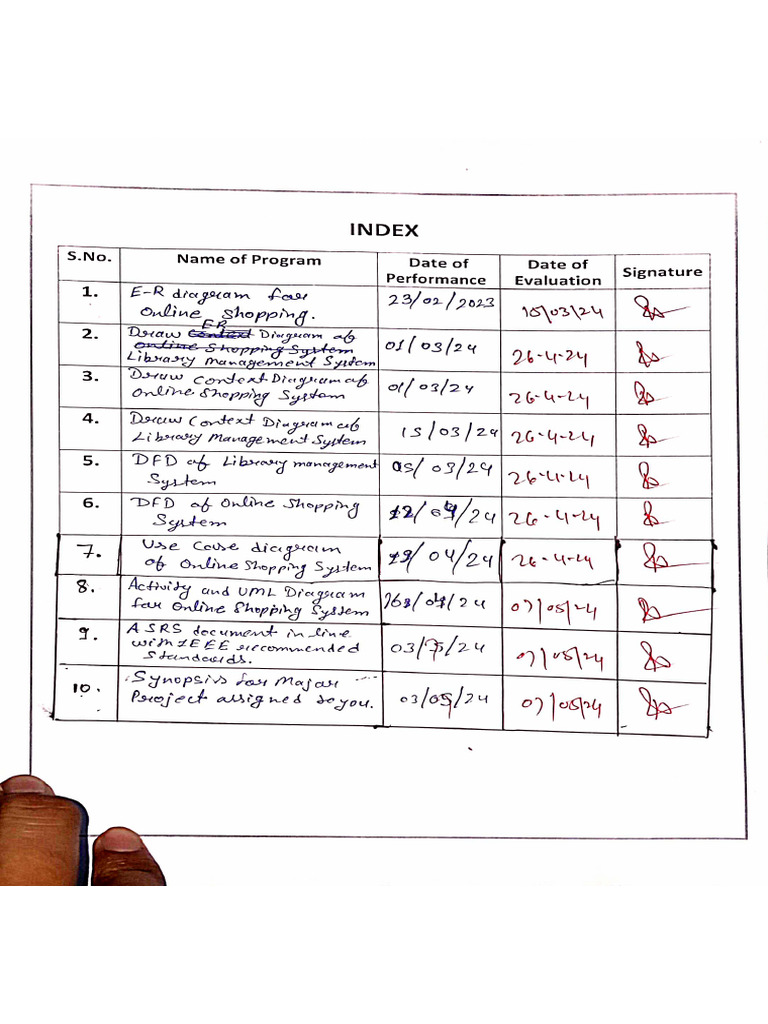 INDEX
S.No. Name of Program Date of Performance Date of Evaluation Signature
1. E-R diagram for 23/02/2023 15/03/24
Online Shopping.
2. Draw ER Diagram of 01/03/24 26-4-24
Online Shopping System
Library Management System
3. Draw Context Diagram of 01/03/24 26-4-24
Online Shopping System
4. Draw Context Diagram of 15/03/24 26-4-24
Library Management System
5. DFD of Library management 05/03/24 26-4-24
System
6. DFD of Online Shopping 26-4-24
System
7. Use Case diagram 19/04/24 26-4-24
of Online Shopping System
8. Activity and UML Diagram 07/05/24
for Online Shopping System
9. A SRS document in line 07/05/24
with IEEE recommended
Standards.
10. Synopsis for Major 03/05/24 07/05/24
Project assigned to you.